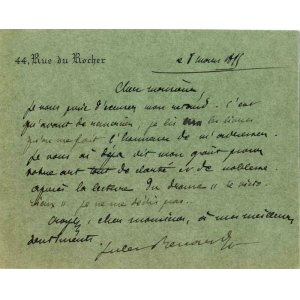 44, Rue du Rocher
8 mars
Cher monsieur,
Je vous prie d'excuser mon retard. C'est
qu'avant de remercier, je lis les livres
qu'on me fait l'honneur de m'adresser.
Je vous ai déjà dit mon goût pour
votre art tout de clarté et de noblesse.
Après la lecture du drame "le
" je ne me dédis pas.
Croyez, cher monsieur, à mes meilleurs
sentiments.
Jules Renard